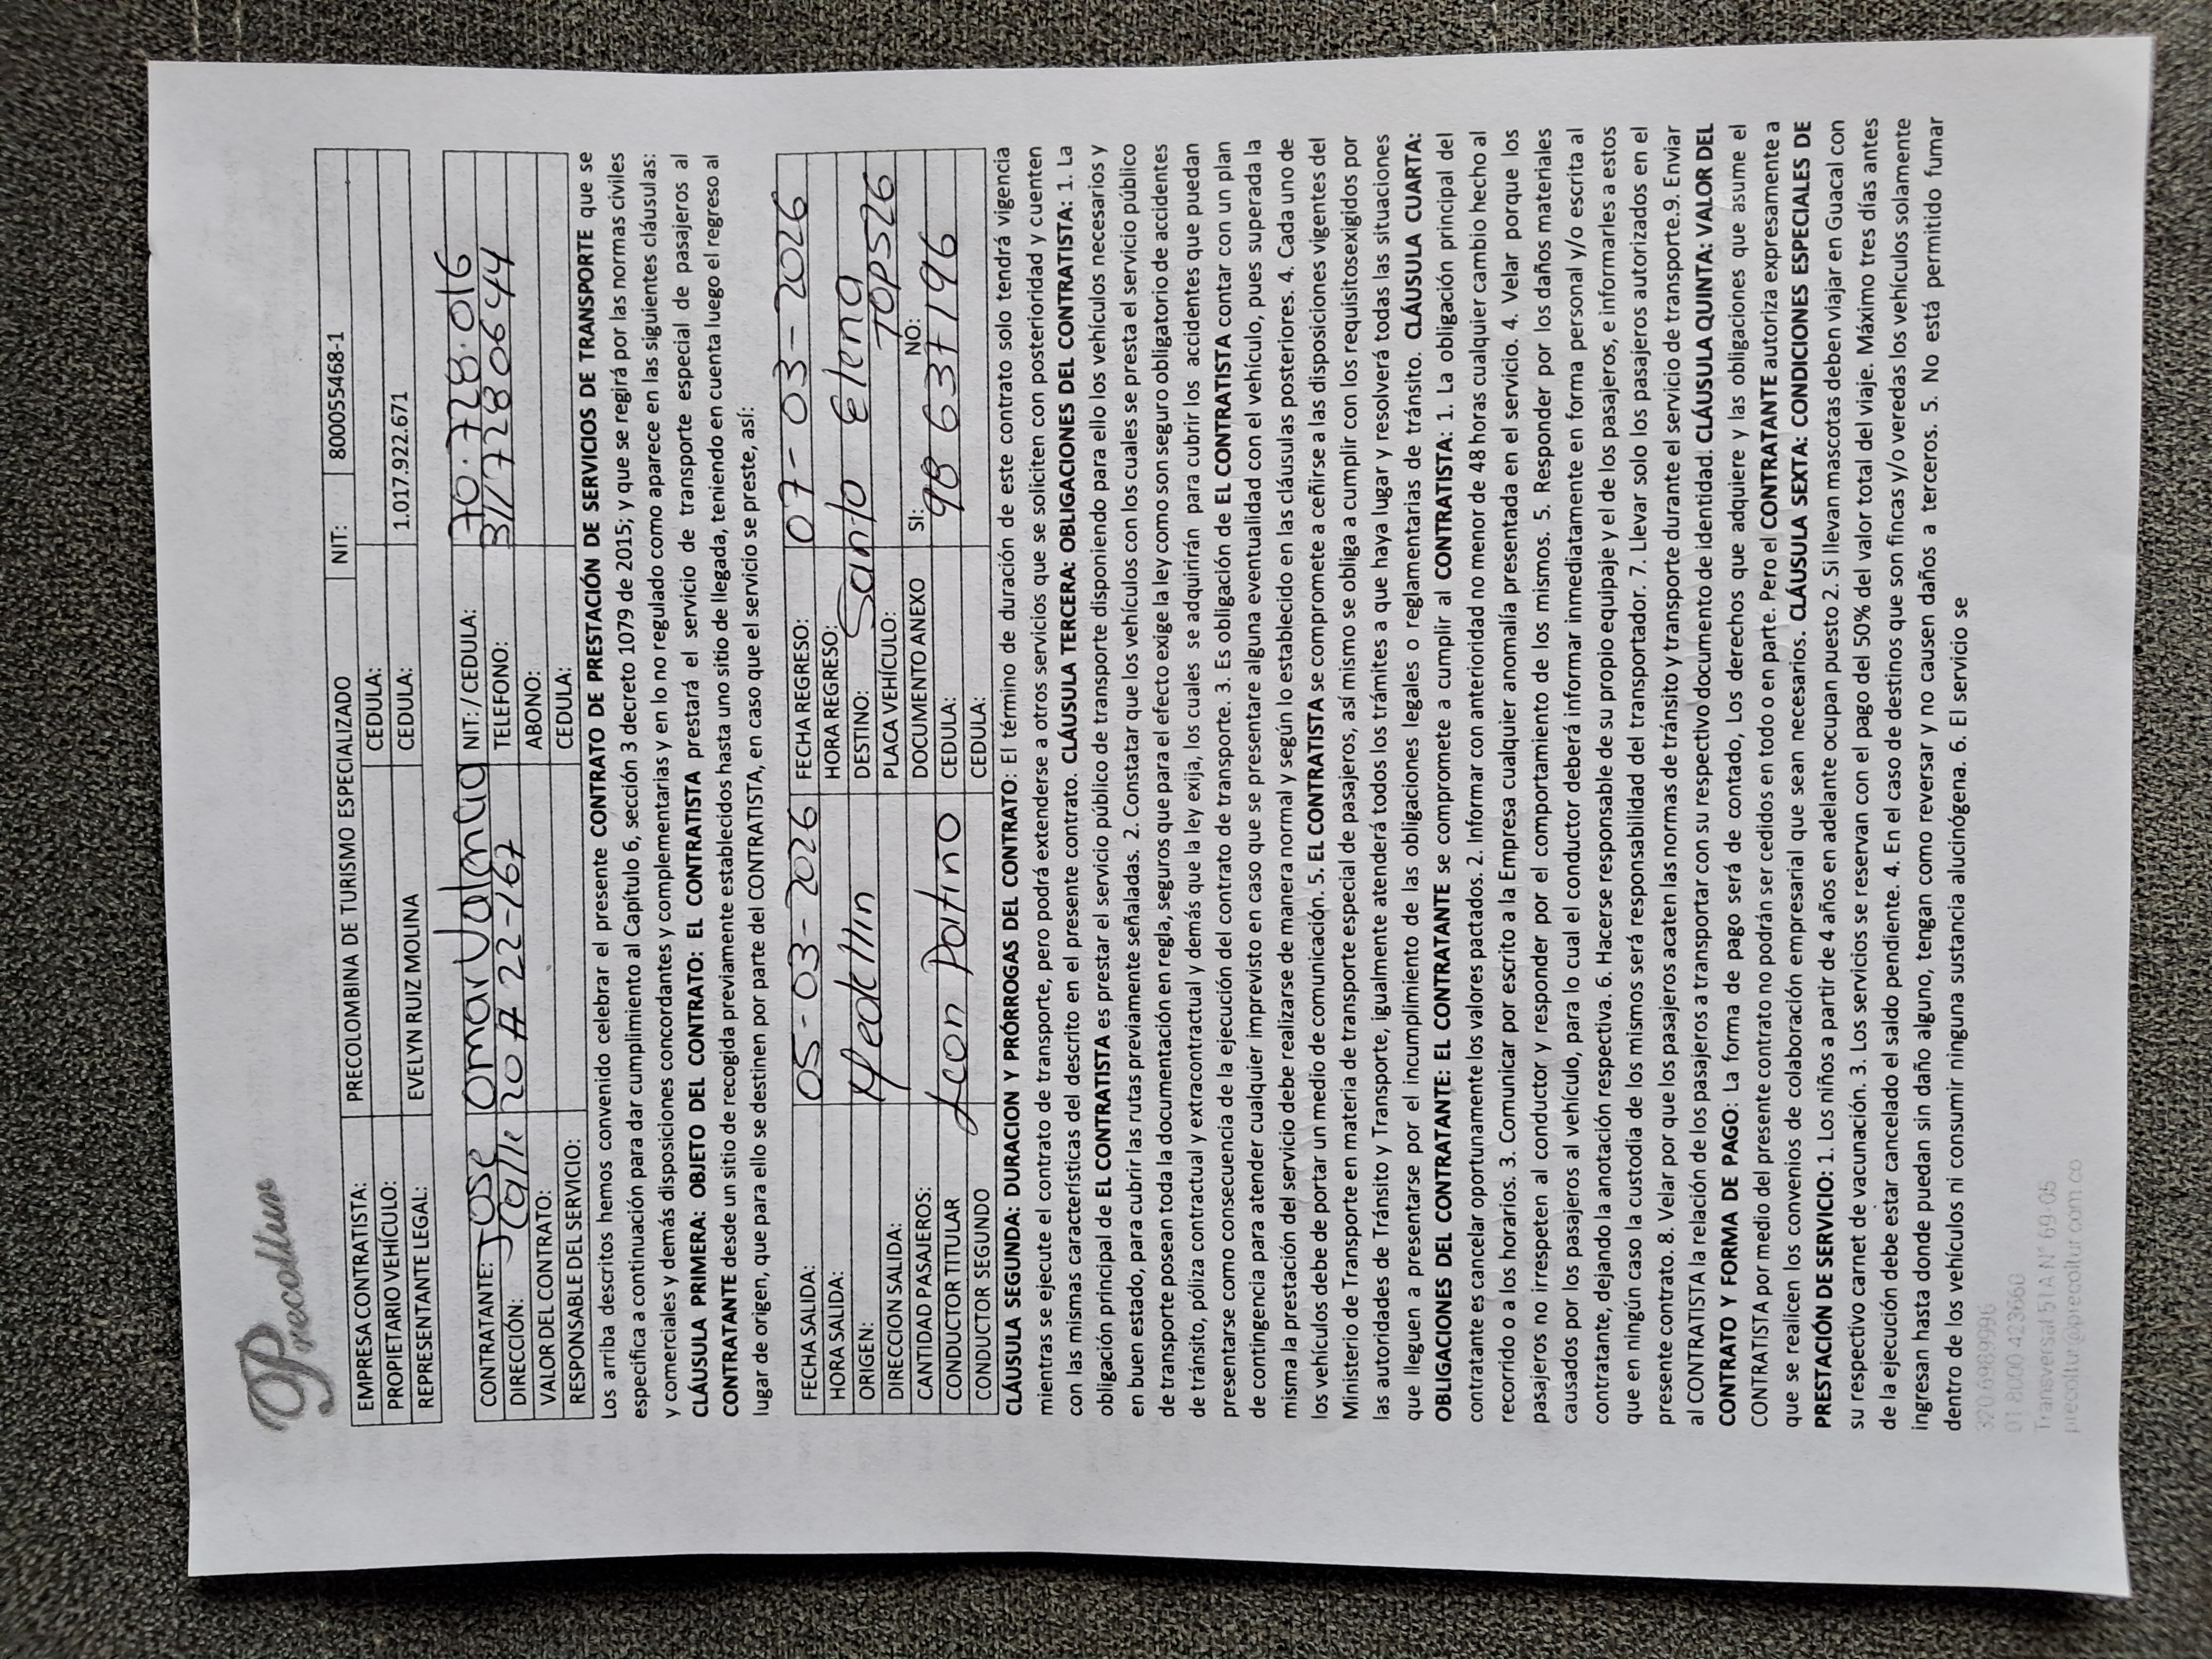 Precoltur
EMPRESA CONTRATISTA: PRECOLOMBINA DE TURISMO ESPECIALIZADO NIT: 800055468-1
PROPIETARIO VEHÍCULO: CEDULA:
REPRESENTANTE LEGAL: EVELYN RUIZ MOLINA CEDULA: 1.017.922.671
CONTRATANTE: Jose Omar Valencia NIT: / CEDULA: 70.728.016
DIRECCIÓN: Calle 20 # 22-167 TELEFONO: 3117280644
VALOR DEL CONTRATO: ABONO:
RESPONSABLE DEL SERVICIO: CEDULA:
Los arriba descritos hemos convenido celebrar el presente CONTRATO DE PRESTACIÓN DE SERVICIOS DE TRANSPORTE que se
especifica a continuación para dar cumplimiento al Capítulo 6, sección 3 decreto 1079 de 2015; y que se regirá por las normas civiles
y comerciales y demás disposiciones concordantes y complementarias y en lo no regulado como aparece en las siguientes cláusulas:
CLÁUSULA PRIMERA: OBJETO DEL CONTRATO: EL CONTRATISTA prestará el servicio de transporte especial de pasajeros al
CONTRATANTE desde un sitio de recogida previamente establecidos hasta uno sitio de llegada, teniendo en cuenta luego el regreso al
lugar de origen, que para ello se destinen por parte del CONTRATISTA, en caso que el servicio se preste, así:
FECHA SALIDA: 05-03-2026 FECHA REGRESO: 07-03-2026
HORA SALIDA: HORA REGRESO:
ORIGEN: Medellin DESTINO: Santo Elena
DIRECCION SALIDA: PLACA VEHÍCULO: TOP526
CANTIDAD PASAJEROS: DOCUMENTO ANEXO SI: NO:
CONDUCTOR TITULAR Leon Patiño CEDULA: 98 637 196
CONDUCTOR SEGUNDO CEDULA:
CLÁUSULA SEGUNDA: DURACION Y PRÓRROGAS DEL CONTRATO: El término de duración de este contrato solo tendrá vigencia
mientras se ejecute el contrato de transporte, pero podrá extenderse a otros servicios que se soliciten con posterioridad y cuenten
con las mismas características del descrito en el presente contrato. CLÁUSULA TERCERA: OBLIGACIONES DEL CONTRATISTA: 1. La
obligación principal de EL CONTRATISTA es prestar el servicio público de transporte disponiendo para ello los vehículos necesarios y
en buen estado, para cubrir las rutas previamente señaladas. 2. Constatar que los vehículos con los cuales se presta el servicio público
de transporte posean toda la documentación en regla, seguros que para el efecto exige la ley como son seguro obligatorio de accidentes
de tránsito, póliza contractual y extracontractual y demás que la ley exija, los cuales se adquirirán para cubrir los accidentes que puedan
presentarse como consecuencia de la ejecución del contrato de transporte. 3. Es obligación de EL CONTRATISTA contar con un plan
de contingencia para atender cualquier imprevisto en caso que se presentare alguna eventualidad con el vehículo, pues superada la
misma la prestación del servicio debe realizarse de manera normal y según lo establecido en las cláusulas posteriores. 4. Cada uno de
los vehículos debe de portar un medio de comunicación. 5. EL CONTRATISTA se compromete a ceñirse a las disposiciones vigentes del
Ministerio de Transporte en materia de transporte especial de pasajeros, así mismo se obliga a cumplir con los requisitosexigidos por
las autoridades de Tránsito y Transporte, igualmente atenderá todos los trámites a que haya lugar y resolverá todas las situaciones
que lleguen a presentarse por el incumplimiento de las obligaciones legales o reglamentarias de tránsito. CLÁUSULA CUARTA:
OBLIGACIONES DEL CONTRATANTE: EL CONTRATANTE se compromete a cumplir al CONTRATISTA: 1. La obligación principal del
contratante es cancelar oportunamente los valores pactados. 2. Informar con anterioridad no menor de 48 horas cualquier cambio hecho al
recorrido o a los horarios. 3. Comunicar por escrito a la Empresa cualquier anomalía presentada en el servicio. 4. Velar porque los
pasajeros no irrespeten al conductor y responder por el comportamiento de los mismos. 5. Responder por los daños materiales
causados por los pasajeros al vehículo, para lo cual el conductor deberá informar inmediatamente en forma personal y/o escrita al
contratante, dejando la anotación respectiva. 6. Hacerse responsable de su propio equipaje y el de los pasajeros, e informarles a estos
que en ningún caso la custodia de los mismos será responsabilidad del transportador. 7. Llevar solo los pasajeros autorizados en el
presente contrato. 8. Velar por que los pasajeros acaten las normas de tránsito y transporte durante el servicio de transporte.9. Enviar
al CONTRATISTA la relación de los pasajeros a transportar con su respectivo documento de identidad. CLÁUSULA QUINTA: VALOR DEL
CONTRATO Y FORMA DE PAGO: La forma de pago será de contado, Los derechos que adquiere y las obligaciones que asume el
CONTRATISTA por medio del presente contrato no podrán ser cedidos en todo o en parte. Pero el CONTRATANTE autoriza expresamente a
que se realicen los convenios de colaboración empresarial que sean necesarios. CLÁUSULA SEXTA: CONDICIONES ESPECIALES DE
PRESTACIÓN DE SERVICIO: 1. Los niños a partir de 4 años en adelante ocupan puesto 2. Si llevan mascotas deben viajar en Guacal con
su respectivo carnet de vacunación. 3. Los servicios se reservan con el pago del 50% del valor total del viaje. Máximo tres días antes
de la ejecución debe estar cancelado el saldo pendiente. 4. En el caso de destinos que son fincas y/o veredas los vehículos solamente
ingresan hasta donde puedan sin daño alguno, tengan como reversar y no causen daños a terceros. 5. No está permitido fumar
dentro de los vehículos ni consumir ninguna sustancia alucinógena. 6. El servicio se
320 6989996
01 8000 423660
Transversal 51 A N° 69-05
precoltur@precoltur.com.co